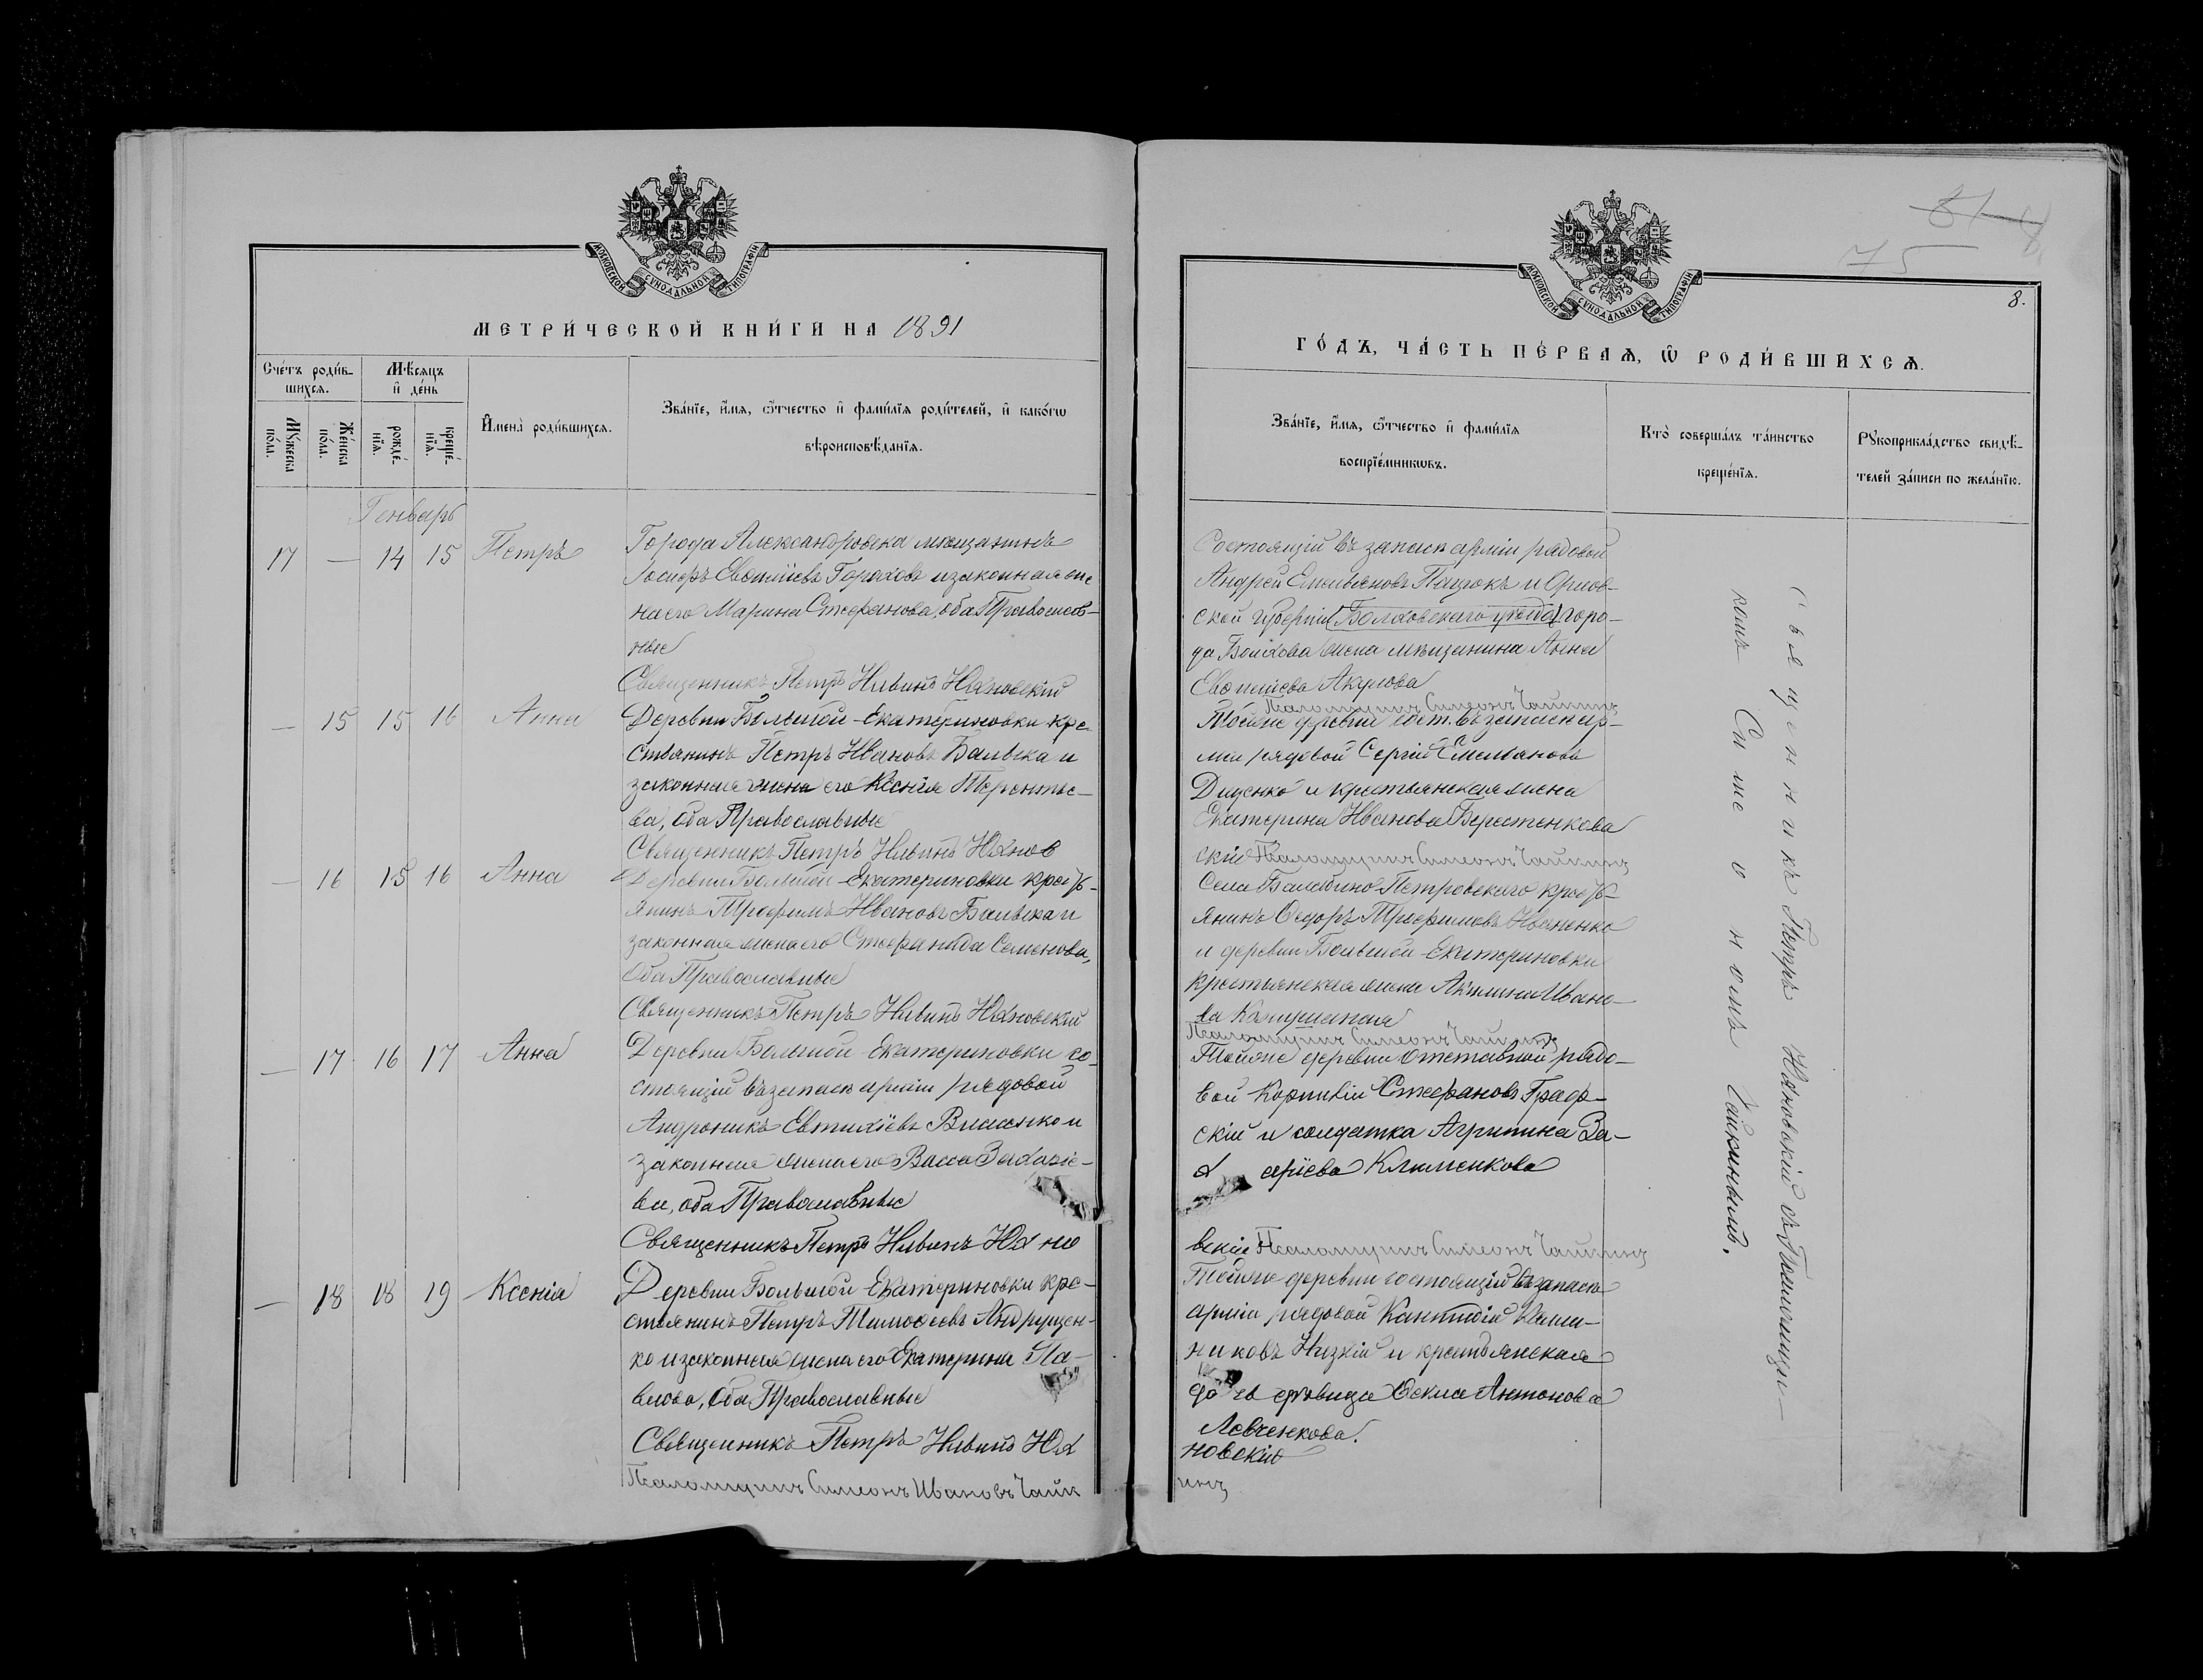 МОСКОВСКОЙ СѴНОДАЛЬНОЙ ТИПОГРАФІИ
МЕТРИ́ЧЕСКОЙ КНИ́ГИ НА 1891
Сче́тъ роди́в-
шихся.
Мѣ́сяцъ
и҆ де́нь
Мꙋ́жеска
по́ла.
Же́нска
по́ла.
рожде́-
нїя.
креще́-
нїя.
И҆мена̀ роди́вшихся.
Зва́нїе, и҆́мя, ѻ҆́тчество и҆ фами́лїя роди́телей, и҆ како́гѡ
вѣроисповѣ́данїя.
Генварь
17 — 14 15 Петръ
Города Александровска мѣщанинъ
Іосифъ Евфиміевъ Гороховъ и законная же
на его Марина Стефанова, оба Православ-
ные
Священникъ Петръ Ильинъ Яновскій
— 15 15 16 Анна
Деревни Большой-Екатериновки кре
стьянинъ Петръ Ивановъ Балыка и
законная жена его Ксенія Терентье-
ва, оба Православные
Священникъ Петръ Ильинъ Янов
— 16 15 16 Анна
Деревни Большой-Екатериновки крест-
янинъ Трофимъ Ивановъ Балыка и
законная жена его Стефанида Семенова,
оба Православные
Священникъ Петръ Ильинъ Яновскій
— 17 16 17 Анна
Деревни Большой-Екатериновки со-
стоящій въ запасѣ арміи рядовой
Андроникъ Евтихіевъ Власенко и
законная жена его Васса
ва, оба Православные
Священникъ Петръ Ильинъ Яно
— 18 18 19 Ксенія
Деревни Большой-Екатериновки кре-
стьянинъ Петръ Тимоѳеевъ Андрущен-
ко и законная жена его Екатерина Па-
влова, оба Православные
Священникъ Петръ Ильинъ Я
Псаломщикъ Симеонъ Ивановъ Чайк
81
75
8.
МОСКОВСКОЙ СѴНОДАЛЬНОЙ ТИПОГРАФІИ
ГО́ДЪ, ЧА́СТЬ ПЕ́РВАѦ, Ѡ҆ РОДИ́ВШИХСѦ.
Зва́нїе, и҆́мя, ѻ҆́тчество и҆ фами́лїя
воспрїе́мникѡвъ.
Кто̀ соверша́лъ та́инство
креще́нїя.
Рꙋкоприкла́дство свидѣ́-
телей за́писи по жела́нїю.
Состоящій въ запасѣ арміи рядовой
Андрей Емельяновъ Пащокъ и Орлов-
ской губерніи (Болховскаго уѣзда) горо-
да Болхова жена мѣщанина Анна
Евфиміева Акулова
Псаломщикъ Симеонъ Чайкинъ
Тойже деревни сост. въ запасѣ ар-
міи рядовой Сергій Емельяновъ
Диденко и крестьянская жена
Екатерина Иванова Берестенкова
скій Псаломщикъ Симеонъ Чайкинъ
Села Балабино-Петровскаго крест-
янинъ Ѳедоръ Трофимовъ Иваненко
и деревни Большой-Екатериновки
крестьянская жена Акилина Ивано-
ва
Псаломщикъ Симеонъ Чайкинъ
Тойже деревни отставной рядо-
вой Корнилій Стефановъ Граф-
скій и солдатка Агрипина За-
харіева Клименкова
вскій Псаломщикъ Симеонъ Чайкинъ
Тойже деревни состоящій въ запасѣ
арміи рядовой Кантидій Калли-
никовъ Низкій и крестьянская
дѣвица Ѳекла Антонова
Левченкова.
новскій
инъ
Священникъ Петръ Яновскій съ Псаломщи-
комъ Симеономъ Чайкинымъ.